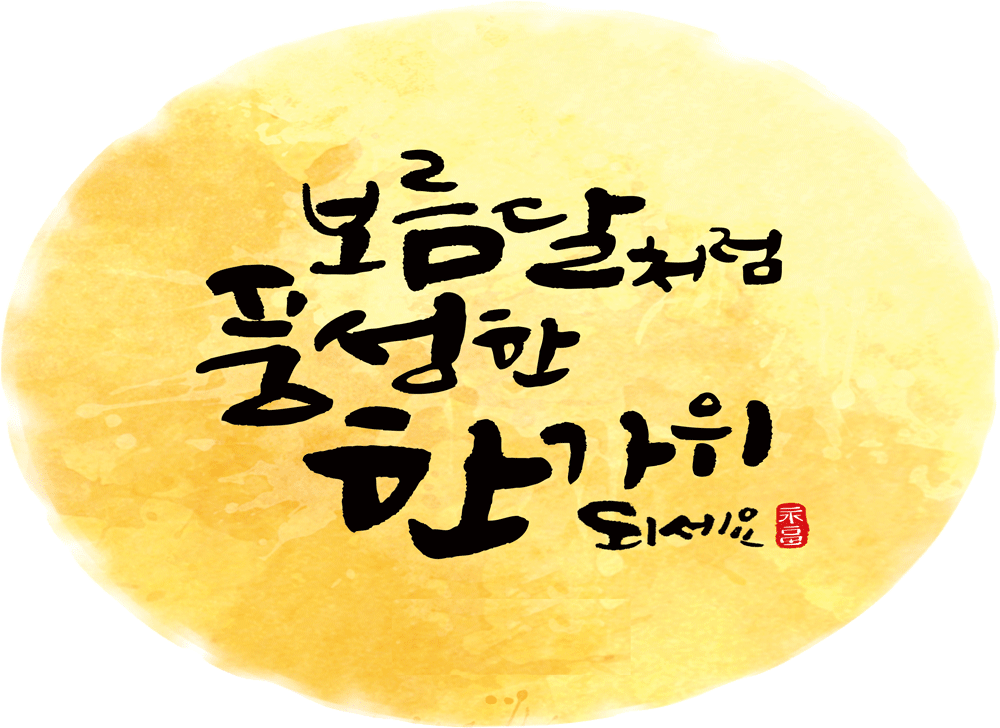 보름달처럼
풍성한
한가위
되세요